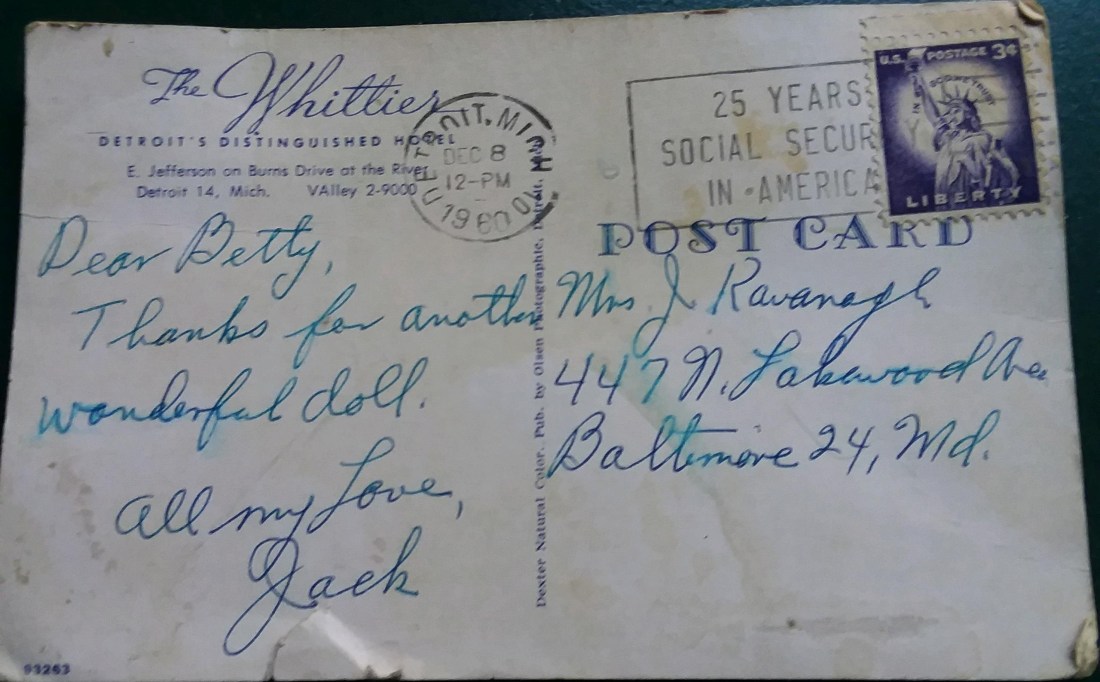 The Whittier
DETROIT'S DISTINGUISHED HOTEL
E. Jefferson on Burns Drive at the River
Detroit 14, Mich. VAlley 2-9000
DETROIT, MICH.
DEC 8
12-PM
1960
25 YEARS
SOCIAL SECURITY
IN AMERICA
U.S. POSTAGE 3¢
IN GOD WE TRUST
LIBERTY
POST CARD
Dear Betty,
Thanks for another
wonderful doll.
All my Love,
Jack
Mrs J Kavanagh
447 N. Lakewood Ave
Baltimore 24, Md.
Dexter Natural Color. Pub. by Olsen Photographic, Detroit, Mich.
93263